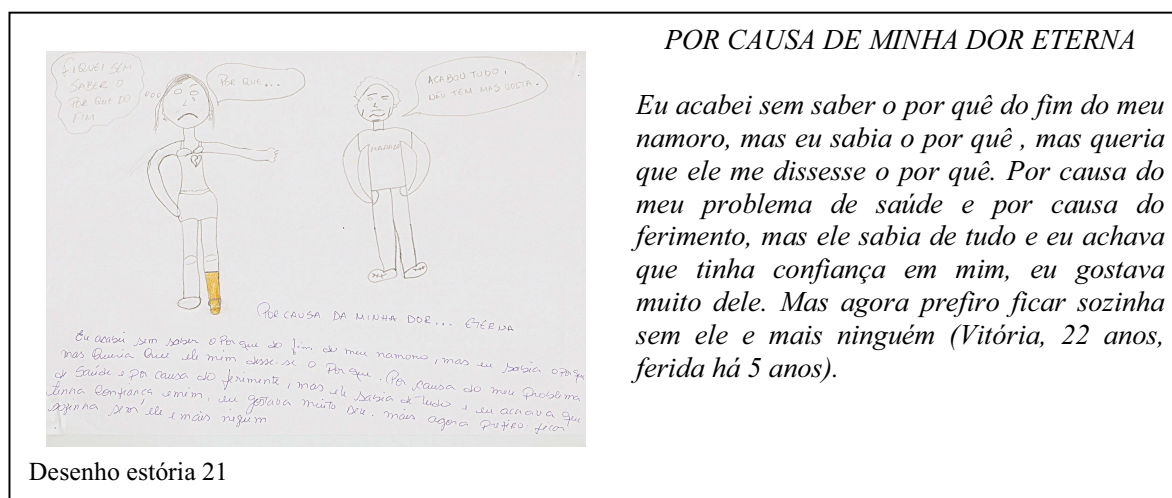 FIQUEI SEM
SABER O
POR QUE DO
FIM
POR QUE...
ACABOU TUDO,
NÃO TEM MAS VOLTA.
POR CAUSA DA MINHA DOR... ETÉRNA
Eu acabei sem saber o Por que do fim do meu namoro, mas eu sabia o Porque
mas Queria Que ele mim desse-se o Porque. Por causa do meu Problema
de Saúde e por causa do ferimento, mas ele sabia de tudo e eu achava que
tinha Confiança emim, eu gostava muito Dele. mais agora Prefiro ficar
sozinha sem ele e mais nigum
Desenho estória 21
POR CAUSA DE MINHA DOR ETERNA
Eu acabei sem saber o por quê do fim do meu
namoro, mas eu sabia o por quê , mas queria
que ele me dissesse o por quê. Por causa do
meu problema de saúde e por causa do
ferimento, mas ele sabia de tudo e eu achava
que tinha confiança em mim, eu gostava
muito dele. Mas agora prefiro ficar sozinha
sem ele e mais ninguém (Vitória, 22 anos,
ferida há 5 anos).